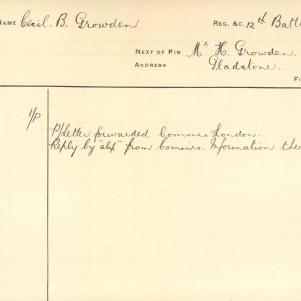 NAME Cecil. B. Growden REG. &C. 12th Batt
NEXT OF KIN Mr H. Growden.
ADDRESS Gladstone.
F
1/P
P/letter forwarded Commrs London.
Reply by "slip" from Commrs. Information the